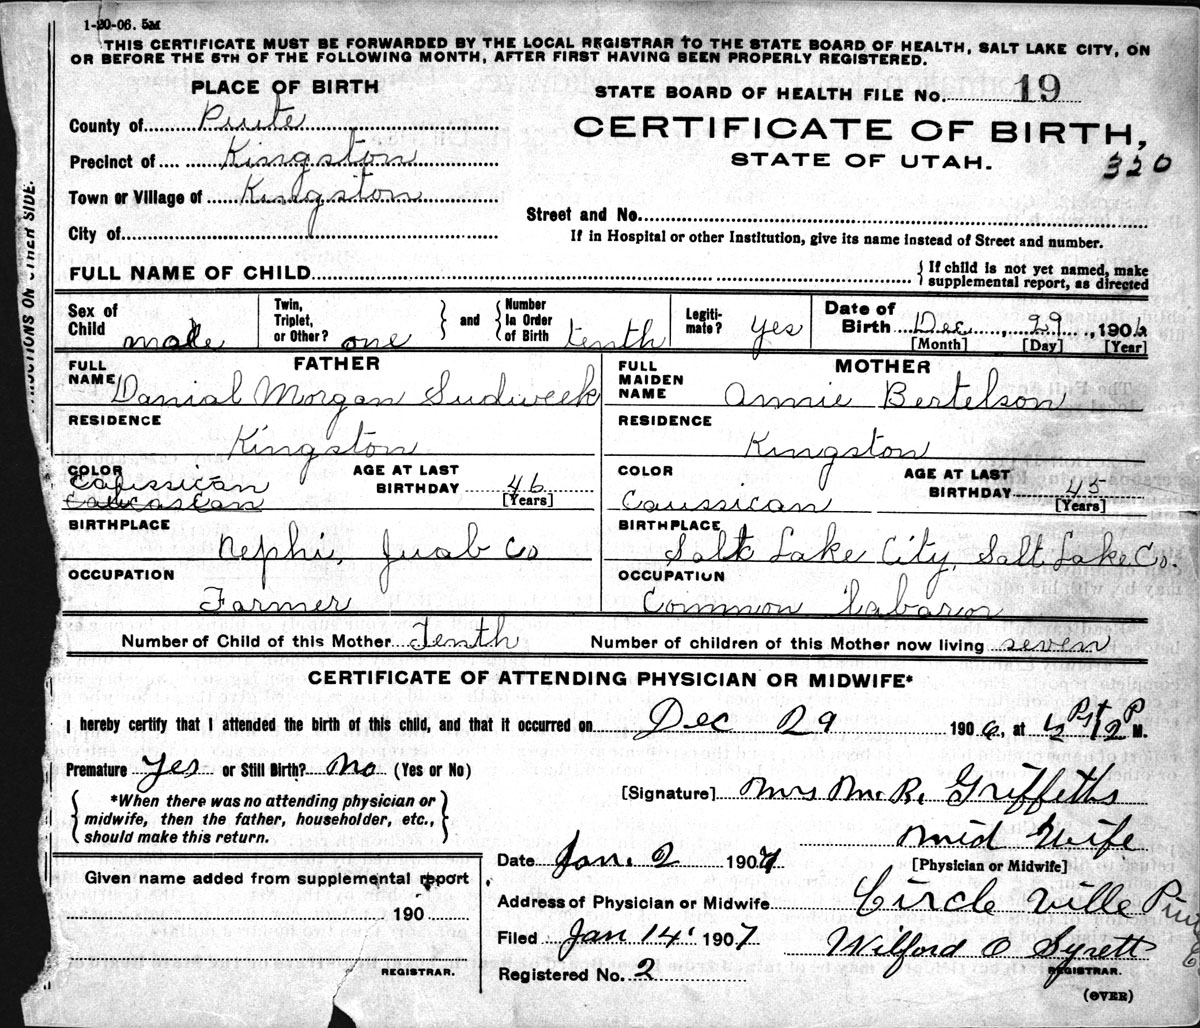 1-20-06. 5M
THIS CERTIFICATE MUST BE FORWARDED BY THE LOCAL REGISTRAR TO THE STATE BOARD OF HEALTH, SALT LAKE CITY, ON
OR BEFORE THE 5TH OF THE FOLLOWING MONTH, AFTER FIRST HAVING BEEN PROPERLY REGISTERED.
PLACE OF BIRTH
STATE BOARD OF HEALTH FILE No. 19
County of Piute
CERTIFICATE OF BIRTH,
Precinct of Kingston
STATE OF UTAH.
320
Town or Village of Kingston
Street and No.
City of
If in Hospital or other Institution, give its name instead of Street and number.
FULL NAME OF CHILD
{ If child is not yet named, make
supplemental report, as directed
Sex of Child male
Twin, Triplet, or Other? one } and { Number In Order of Birth tenth
Legiti-mate? yes
Date of Birth Dec, 29, 1906
[Month] [Day] [Year]
FATHER
MOTHER
FULL NAME Danial Morgan Sudweek
FULL MAIDEN NAME Annie Bertelson
RESIDENCE Kingston
RESIDENCE Kingston
COLOR Caussican
Caucasian
AGE AT LAST BIRTHDAY 46 [Years]
COLOR Caussican
AGE AT LAST BIRTHDAY 45 [Years]
BIRTHPLACE Nephi, Juab Co
BIRTHPLACE Salt Lake City, Salt Lake Co.
OCCUPATION Farmer
OCCUPATION Common Labaror
Number of Child of this Mother Tenth
Number of children of this Mother now living seven
CERTIFICATE OF ATTENDING PHYSICIAN OR MIDWIFE*
I hereby certify that I attended the birth of this child, and that it occurred on Dec 29 1906, at P M.
Premature yes or Still Birth? no (Yes or No)
{ *When there was no attending physician or
midwife, then the father, householder, etc.,
should make this return. }
[Signature] Mrs M. R. Griffeths
Mid Wife
[Physician or Midwife]
Date Jan. 2 1907
Given name added from supplemental report
190
REGISTRAR.
Address of Physician or Midwife Circle Ville
Filed Jan 14' 1907
Wilford O Syrett
REGISTRAR.
Registered No. 2
(OVER)